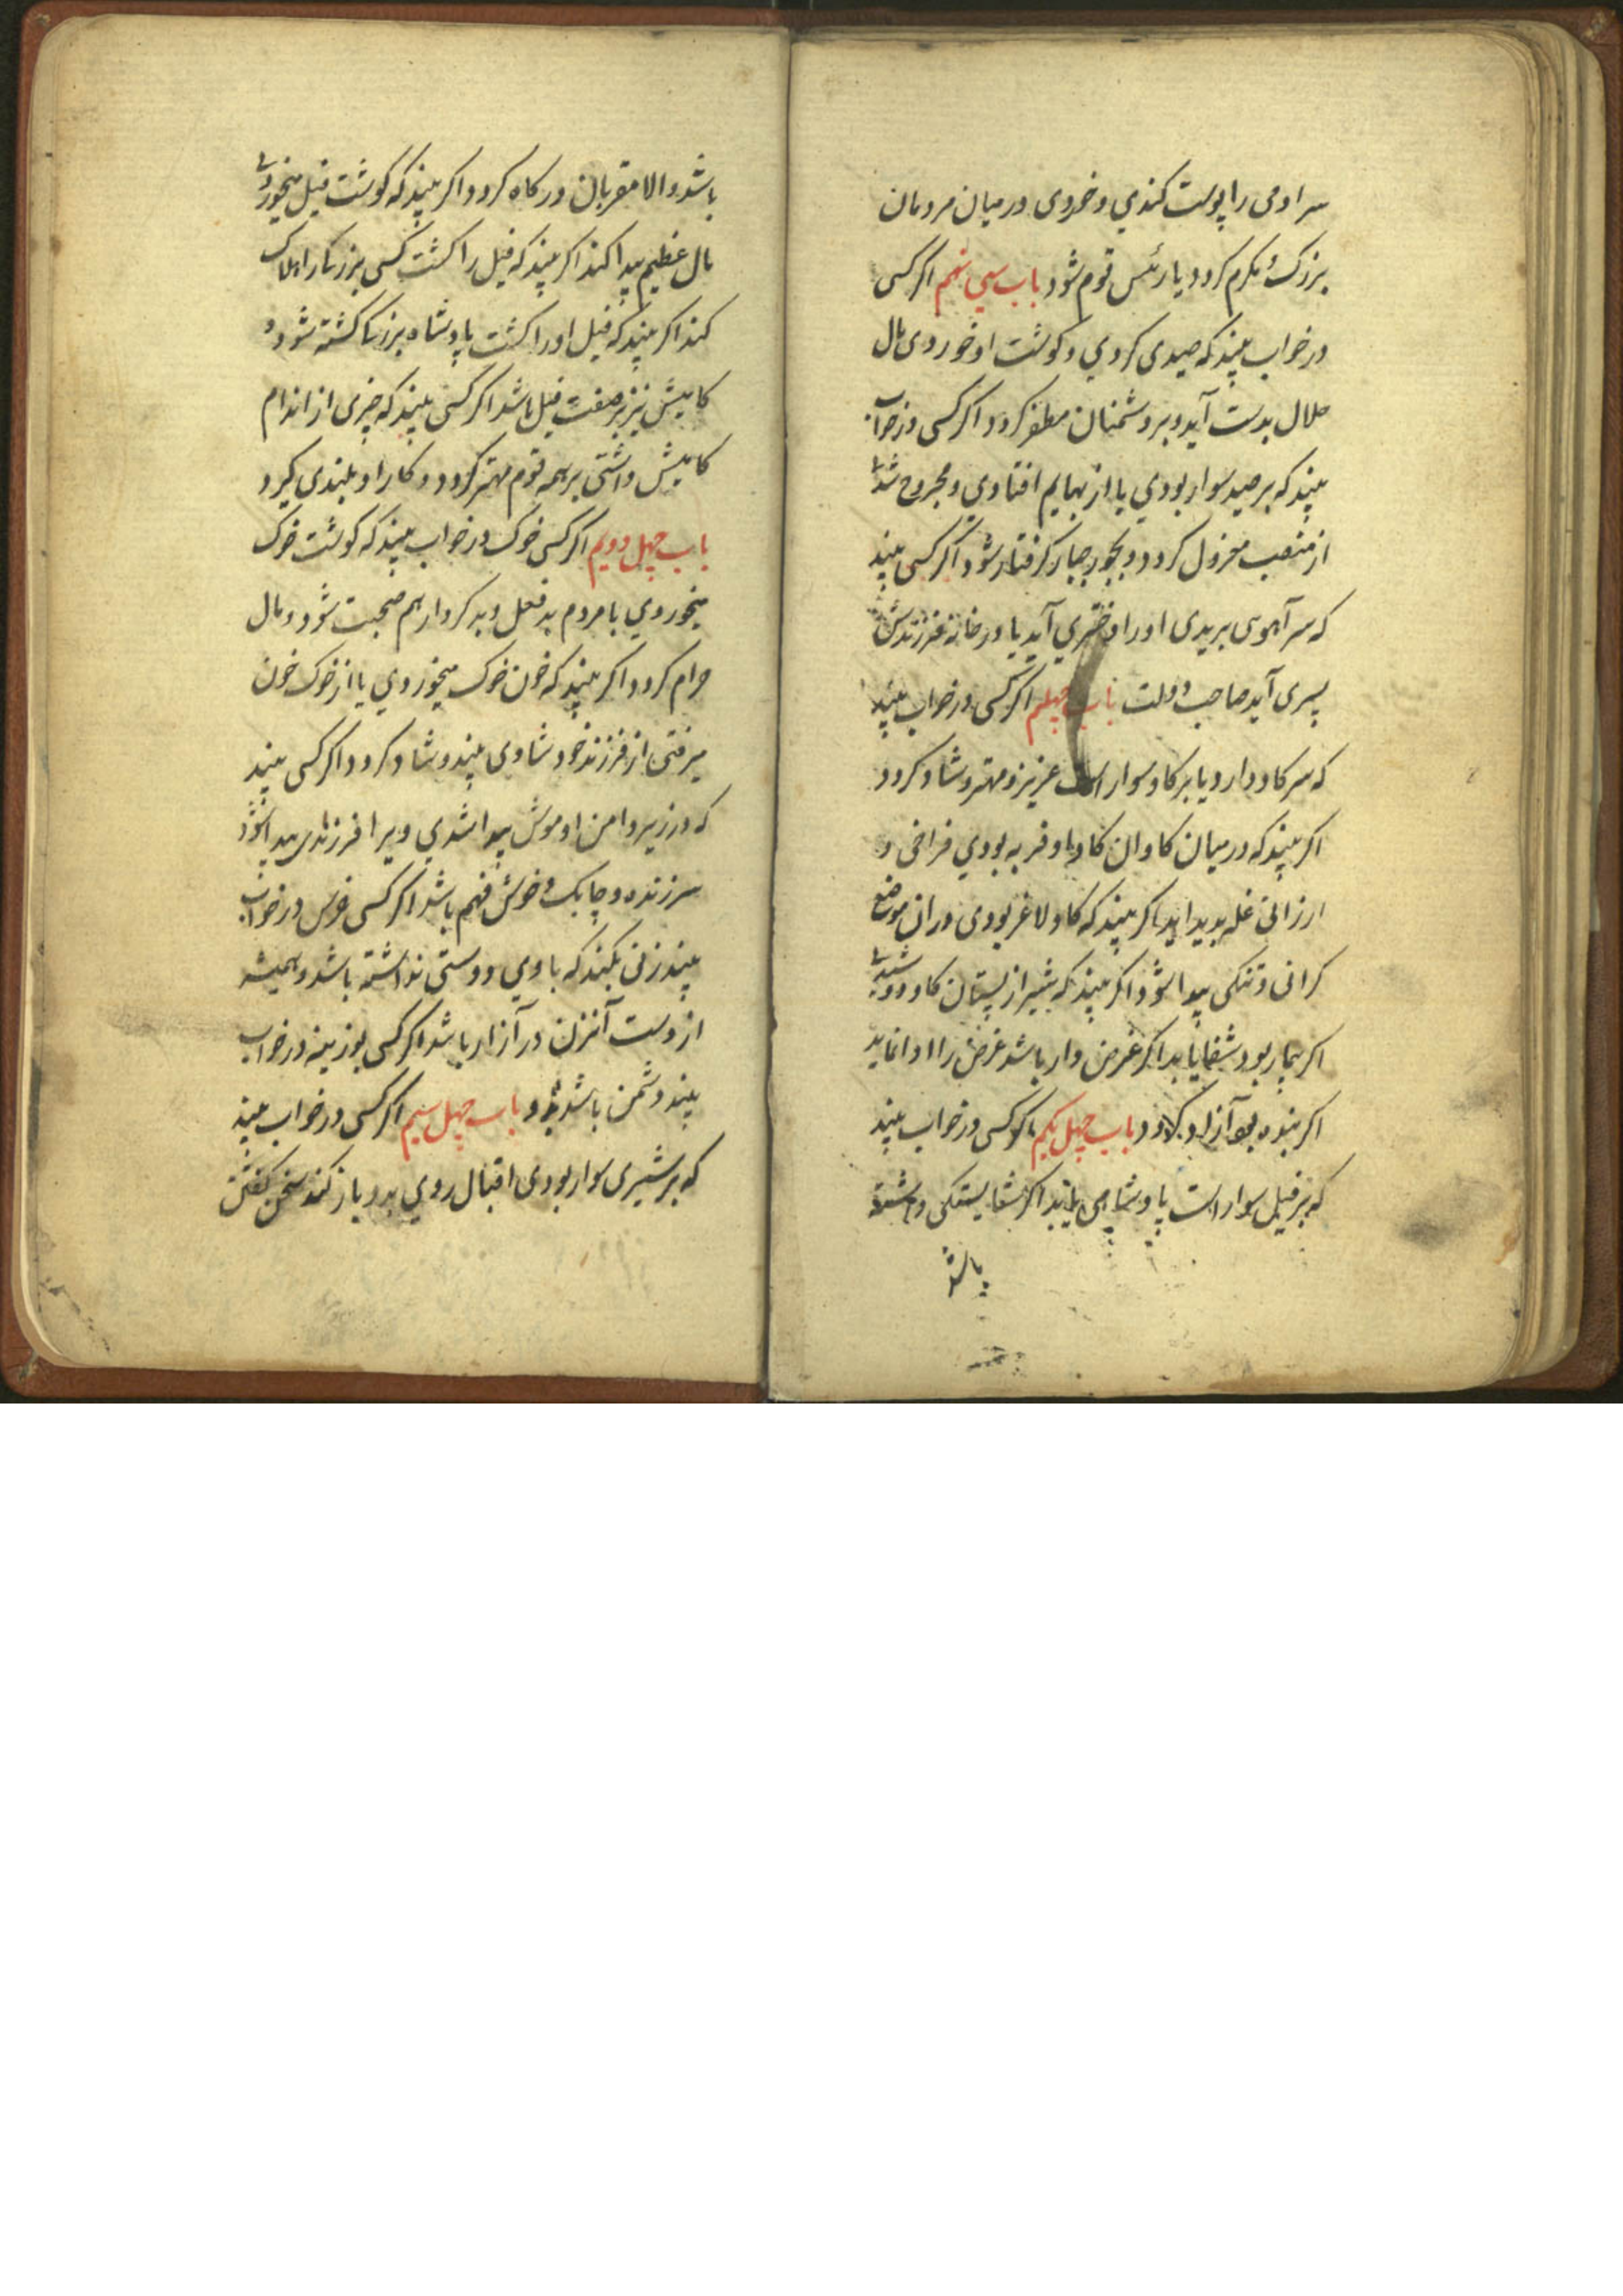 سر ادمی را پوست کندي و خوردی در میان مردمان
بزرک و مکرم کردد یا رئس قوم شود باب سی نهم اکر کسی
در خواب بیند که صیدی کردي و کوشت او خوردی مال
حلال بدست آید و بر دشمنان مظفر کردد اکر کسی در خواب
بیند که بر صید سوار بودي یا از بهایم افتادي و مجروح شدی
از منصب معزول کردد و بجور جبار کرفتار شود اکر کسی بیند
که سر آهوی بریدی او را دختري آید یا در خانه فرزندش
پسری آید صاحب دولت باب چهلم اکر کسی در خواب بیند
که سر کاو دارد یا بر کاو سوار است عزیز و مهتر و شاد کردد
اکر بیند که در میان کاوان کاو با و فربه بودي فراخی و
ارزانی غله بدید اید اکر بیند که کاو لاغر بودی در ان موضع
کرانی و تنکی پیدا شود اکر بیند که شیر از پستان کاو دوشیدی
اکر بیمار بود شفا یابد اکر غرض دار باشد غرض را ادا نماید
اکر بنده بود آزاد کردد باب چهل یکم اکر کسی در خواب بیند
که بر فیل سوار است پادشاهی یابد اکر شایستکی داشته
باشد
باشد والا مقربان درکاه کردد اکر بیند که کوشت فیل میخوردی
مال عظیم پیدا کند اکر بیند که فیل را کشت کسی بزرک را هلاک
کند اکر بیند که فیل او را کشت پادشاه بزرک کشته شود و
کامیش نیز بر صفت فیل باشد اکر کسی بیند که چیزی از اندام
کامیش داشتی بر همه قوم مهتر کردد و کار او بلندی کیرد
باب چهل دویم اکر کسی خوک در خواب بیند که کوشت خوک
میخوردي با مردم بد فعل و بد کردار هم صحبت شود و مال
حرام کردد اکر بیند که خون خوک میخوردي یا از خوک خون
میرفتی از فرزند خود شادی بیند و شاد کردد اکر کسی بیند
که در زیر دامن او موش پیدا شدي ویرا فرزندی پیدا شود
سرزنده و چابک و خوش فهم باشد اکر کسی خرس در خواب
بیند زنی بکند که با وي دوستی نداشته باشد و همیشه
از دست آنزن در آزار باشد اکر کسی بوزینه در خواب
بیند دشمن باشد باب چهل سیم اکر کسی در خواب بیند
که بر شیری سوار بودی اقبال روي بدو باز کند سخن کفتن